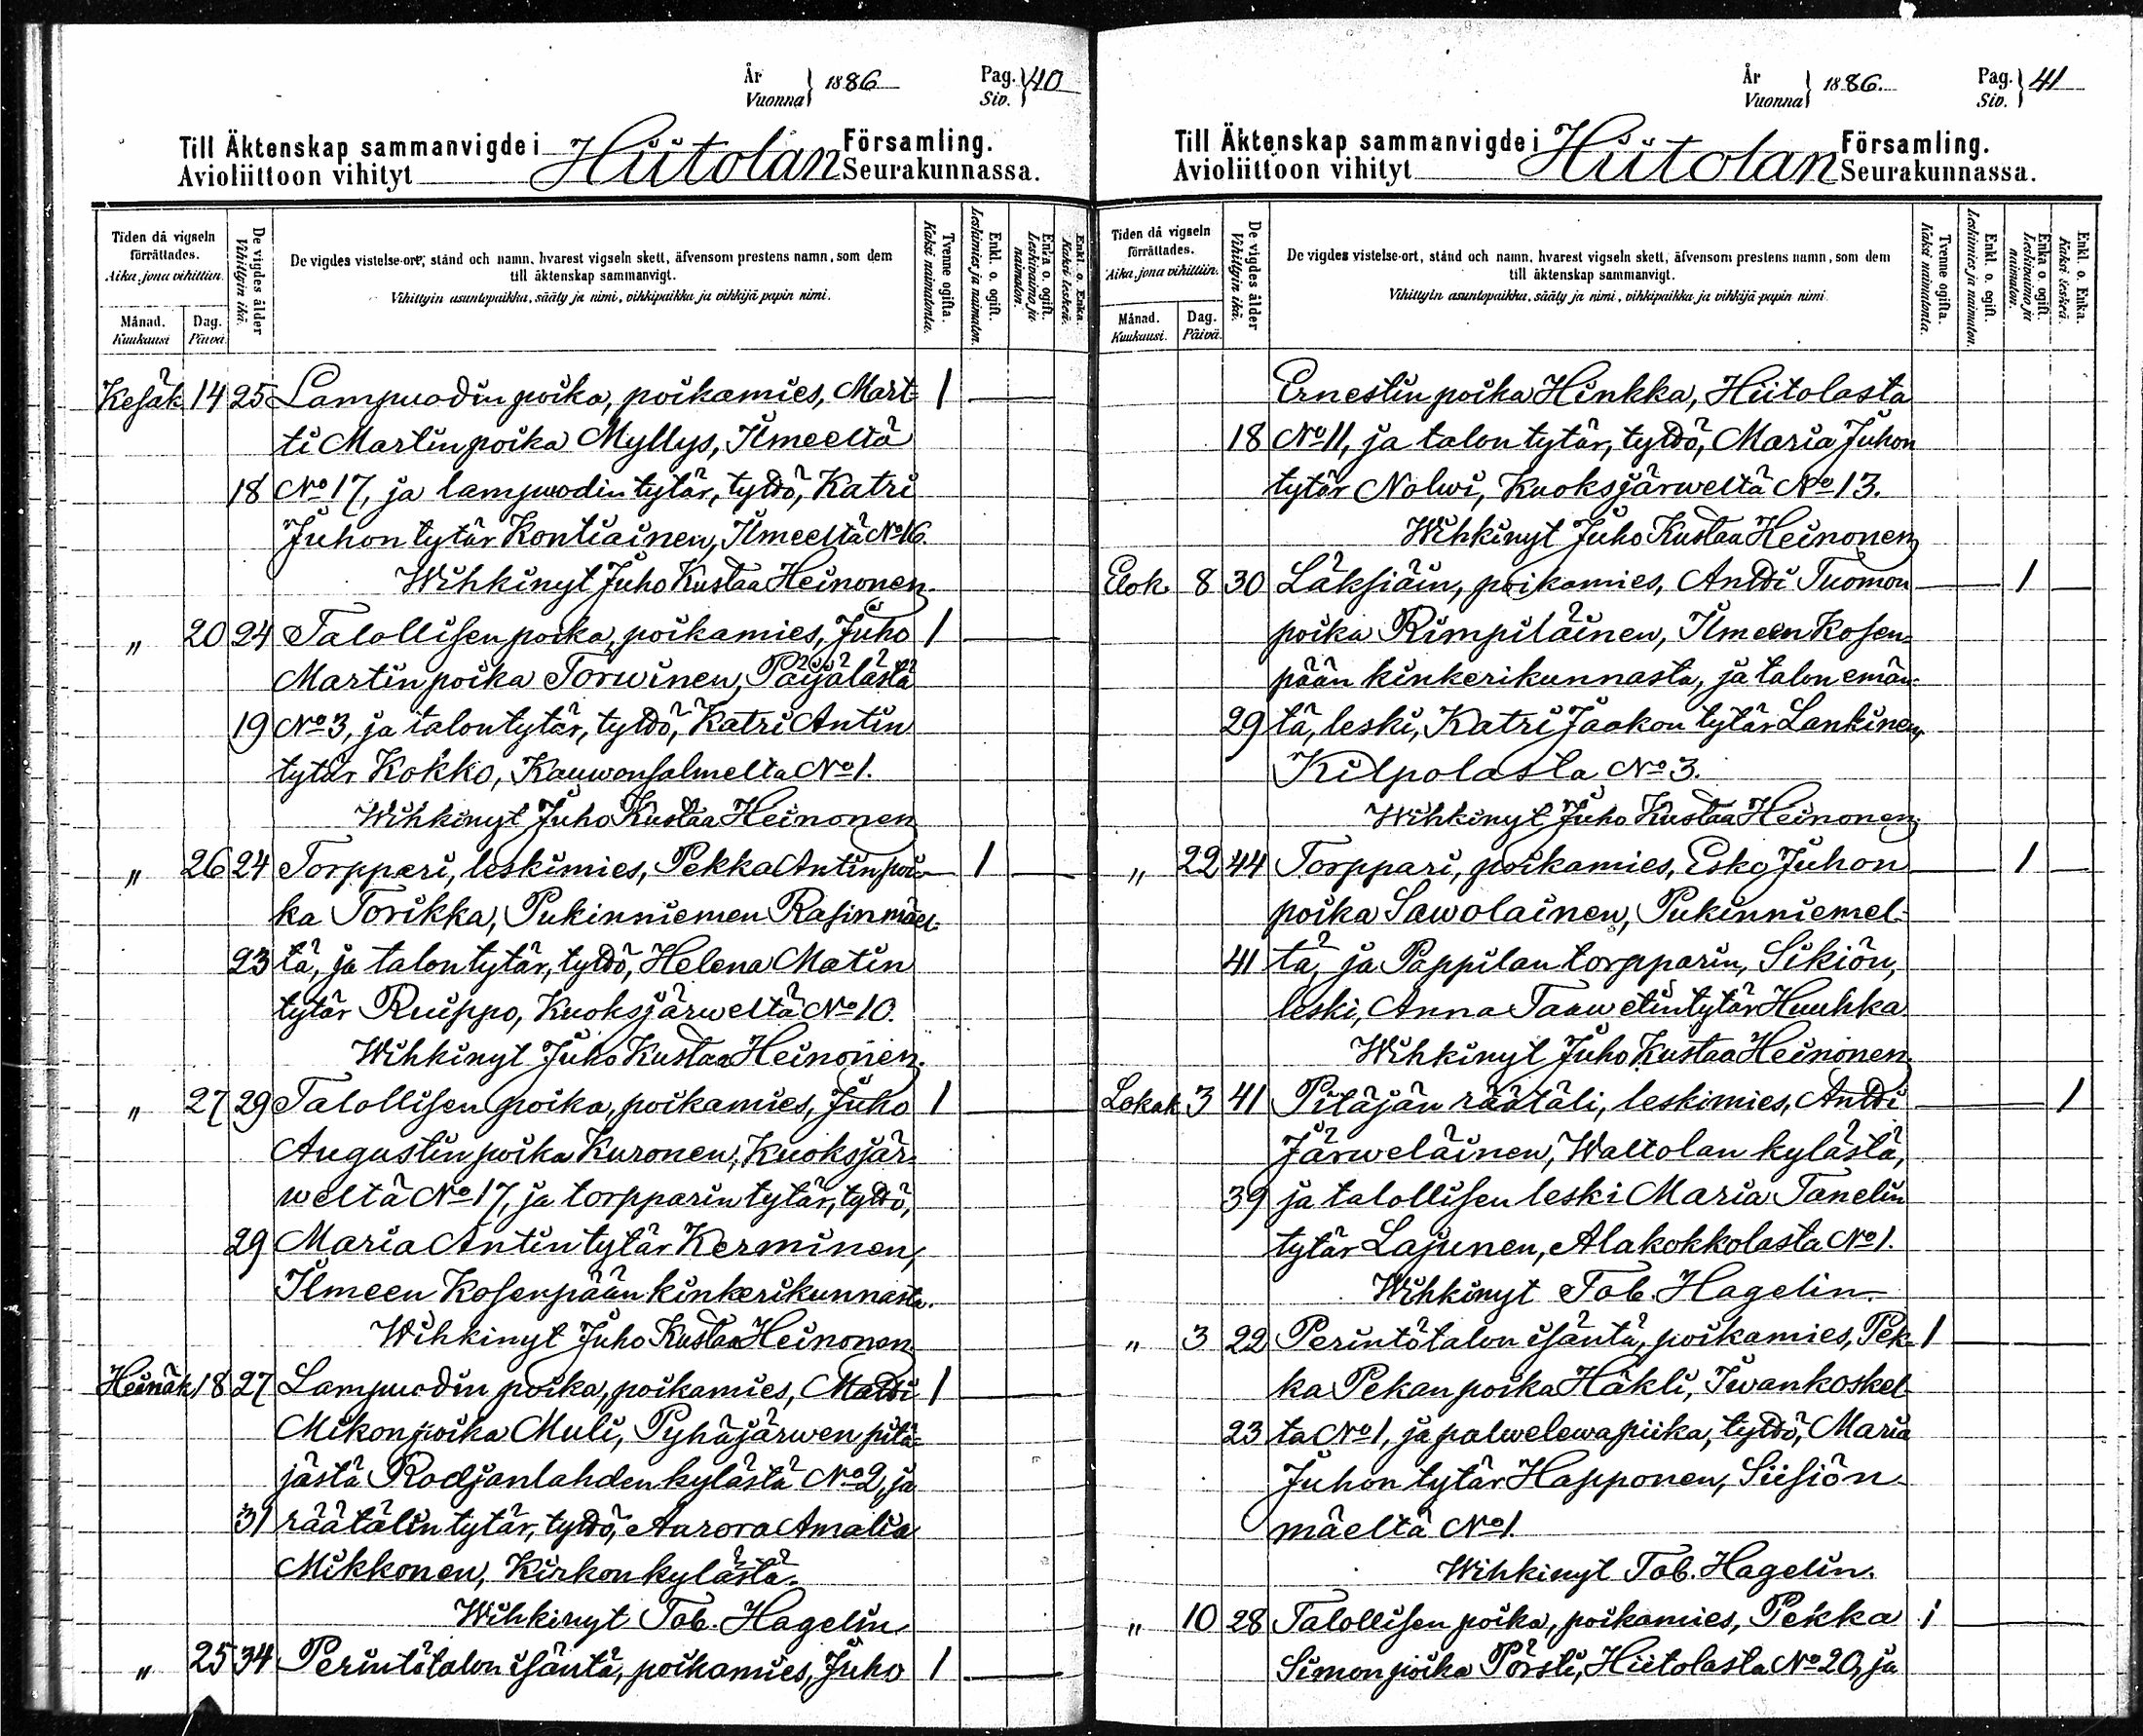 År
Vuonna } 1886
Pag.
Siv. } 40
Till Äktenskap sammanvigde i Hiitolan Församling.
Avioliittoon vihityt Seurakunnassa.
Tiden då vigseln förrättades.
Aika, jona vihittiin.
Månad.
Kuukausi
Dag.
Päivä.
De vigdes ålder
Vihittyin ikä.
De vigdes vistelse-ort, stånd och namn, hvarest vigseln skett, äfvensom prestens namn, som dem
till äktenskap sammanvigt.
Vihittyin asuntopaikka, sääty ja nimi, vihkipaikka ja vihkijä papin nimi.
Tvenne ogifta.
Kaksi naimatonta.
Enkl. o. ogift.
Leskimies ja naimaton.
Enka o. ogift.
Leskivaimo ja naimaton.
Enkl. o. Enka.
Kaksi leskeä.
Kesäk 14 25 Lampuodin poika, poikamies, Mart= 1
ti Martinpoika Myllys, Ilmeeltä
18 No 17, ja lampuodin tytär, tyttö, Katri
Juhontytär Kontiainen, Ilmeeltä No 16.
Wihkinyt Juho Kustaa Heinonen.
" 20 24 Talollisen poika, poikamies, Juho 1
Martinpoika Torwinen, Päijälästä
19 No 3, ja talontytär, tyttö, Katri Antin
tytär Kokko, Kauwonsalmelta No 1.
Wihkinyt Juho Kustaa Heinonen
" 26 24 Torppari, leskimies, Pekka Antinpoi- 1
ka Torikka, Pukinniemen Rasinmäel-
23 tä, ja talontytär, tyttö, Helena Matin
tytär Ruippo, Kuoksjärweltä No 10.
Wihkinyt Juho Kustaa Heinonen.
" 27 29 Talollisen poika, poikamies, Juho 1
Augustinpoika Kuronen, Kuoksjär-
weltä No 17, ja torpparin tytär, tyttö,
29 Maria Antintytär Kerminen,
Ilmeen Kosenpään kinkerikunnasta.
Wihkinyt Juho Kustaa Heinonen.
Heinäk 18 27 Lampuodin poika, poikamies, Matti 1
Mikonpoika Muli, Pyhäjärwen pitä=
jästä Rodjanlahden kylästä No 2, ja
31 räätälin tytär, tyttö, Aurora Amalia
Mikkonen, Kirkonkylästä.
Wihkinyt Tob. Hagelin
" 25 34 Perintötalon isäntä, poikamies, Juho 1
År
Vuonna } 1886.
Pag.
Siv. } 41
Till Äktenskap sammanvigde i Hiitolan Församling.
Avioliittoon vihityt Seurakunnassa.
Tiden då vigseln förrättades.
Aika, jona vihittiin.
Månad.
Kuukausi.
Dag.
Päivä.
De vigdes ålder
Vihittyin ikä.
De vigdes vistelse-ort, stånd och namn, hvarest vigseln skett, äfvensom prestens namn, som dem
till äktenskap sammanvigt.
Vihittyin asuntopaikka, sääty ja nimi, vihkipaikka ja vihkijä papin nimi.
Tvenne ogifta.
Kaksi naimatonta.
Enkl. o. ogift.
Leskimies ja naimaton.
Enka o. ogift.
Leskivaimo ja naimaton.
Enkl. o. Enka.
Kaksi leskeä.
Ernestin poika Hinkka, Hiitolasta
18 No 11, ja talon tytär, tyttö, Maria Juhon
tytär Nolwi, Kuoksjärweltä No 13.
Wihkinyt Juho Kustaa Heinonen
Elok 8 30 Läksiäin, poikamies, Antti Tuomon 1
poika Rimpiläinen, Ilmeen Kosen=
pään kinkerikunnasta, ja talon emän=
29 tä, leski, Katri Jaakon tytär Lankinen,
Kilpolasta No 3.
Wihkinyt Juho Kustaa Heinonen.
" 22 44 Torppari, poikamies, Esko Juhon 1
poika Sawolainen, Pukinniemel-
41 tä, ja Pappilan torpparin, Sikiön,
leski, Anna Taawetintytär Huuhka
Wihkinyt Juho Kustaa Heinonen.
Lokak 3 41 Pitäjän räätäli, leskimies, Antti 1
Järweläinen, Waltolan kylästä,
39 ja talollisen leski Maria Tanelin
tytär Lajunen, Alakokkolasta No 1.
Wihkinyt Tob. Hagelin.
" 3 22 Perintötalon isäntä, poikamies, Pek- 1
ka Pekanpoika Häkli, Iwankoskel
23 ta No 1, ja palwelewa piika, tyttö, Maria
Juhon tytär Happonen, Siisiön
mäeltä No 1.
Wihkinyt Tob. Hagelin.
" 10 28 Talollisen poika, poikamies, Pekka 1
Simonpoika Pörsti, Hiitolasta No 20, ja